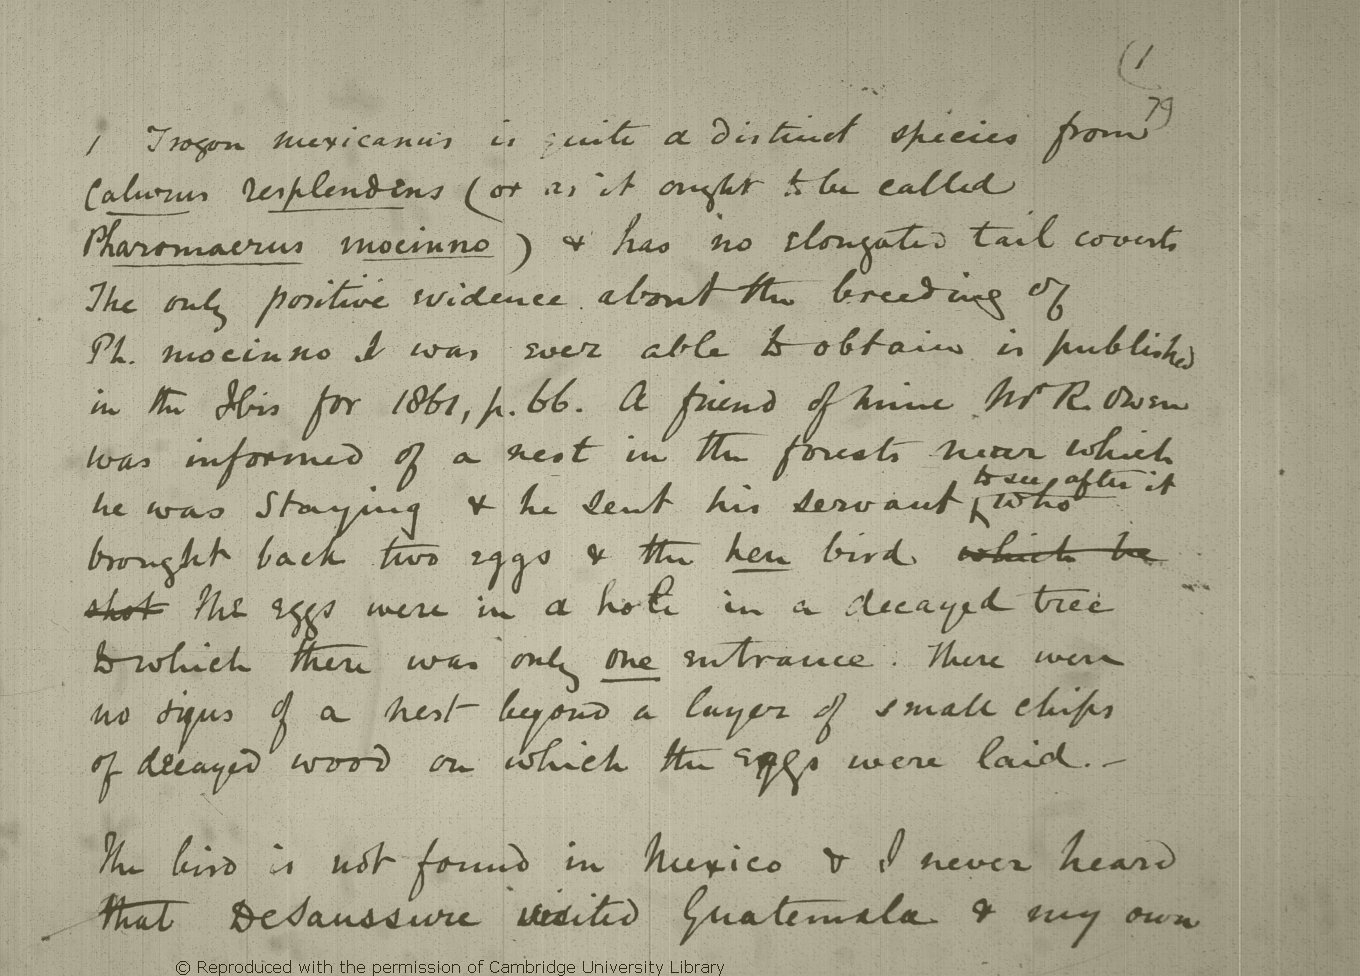 (1
79
1 Trogon mexicanus is quite a distinct species from
Calurus resplendens (or as it ought to be called
Pharomacrus mocinno) & has no elongated tail coverts
The only positive evidence about the breeding of
Ph. mocinno I was ever able to obtain is published
in the Ibis for 1861, p. 66. A friend of mine Mr R. Owen
was informed of a nest in the forests near which
to see after it
he was staying & he sent his servant who
brought back two eggs & the hen bird which he
shot The eggs were in a hole in a decayed tree
to which there was only one entrance. There were
no signs of a nest beyond a layer of small chips
of decayed wood on which the eggs were laid.—
The bird is not found in Mexico & I never heard
that DeSaussure visited Guatemala & my own
© Reproduced with the permission of Cambridge University Library